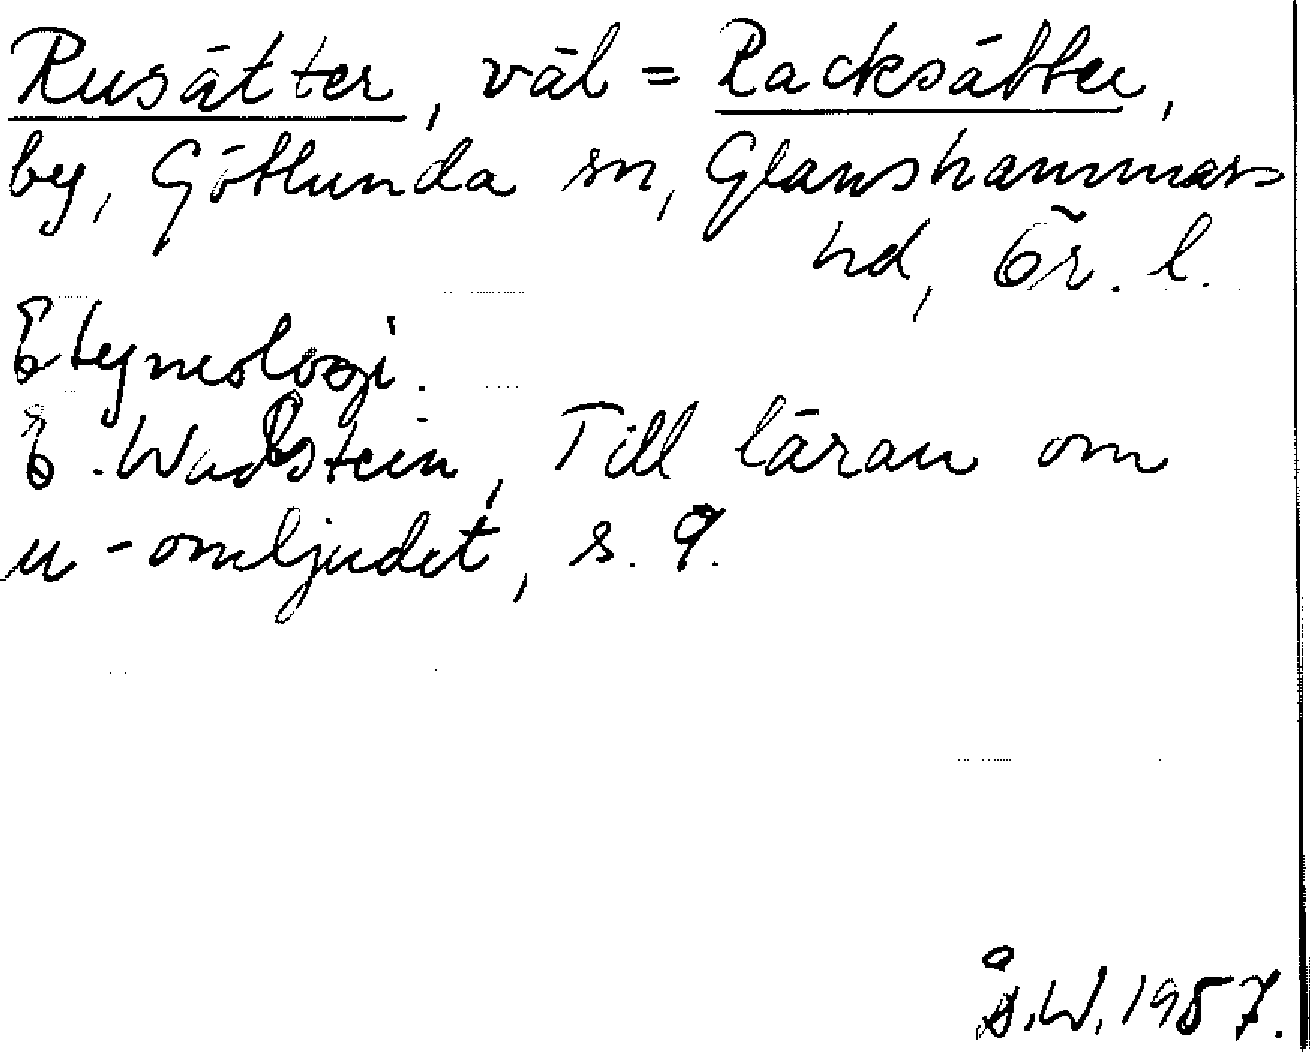 Rusätter, väl = Racksätter,
by, Götlunda sn, Glanshammars
hd, Ör. l.
Etymologi.
E. Wadstein, Till läran om
u-omljudet, s. 9.
Å.W. 1957.